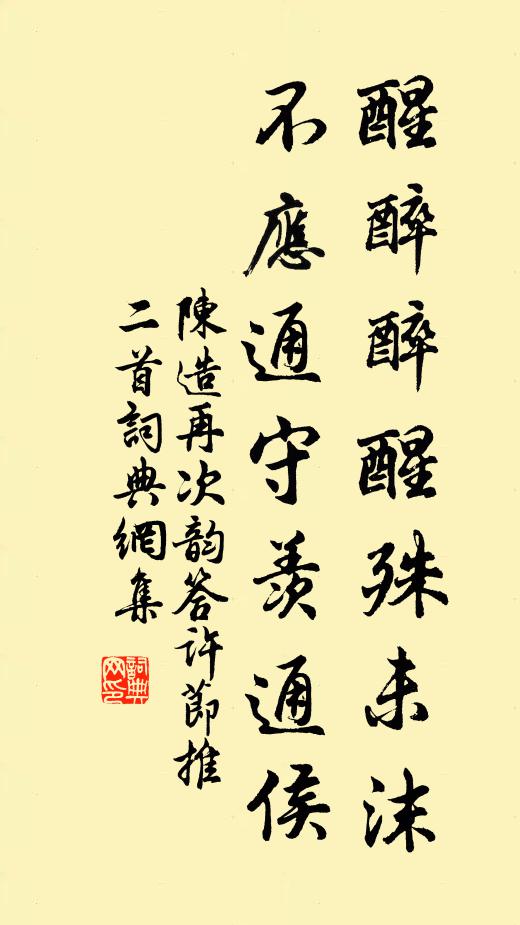 醒醉醉醒殊未沫
不應通守羨通侯
陳造再次韵答許節推
二首詞典網集
詞典網印